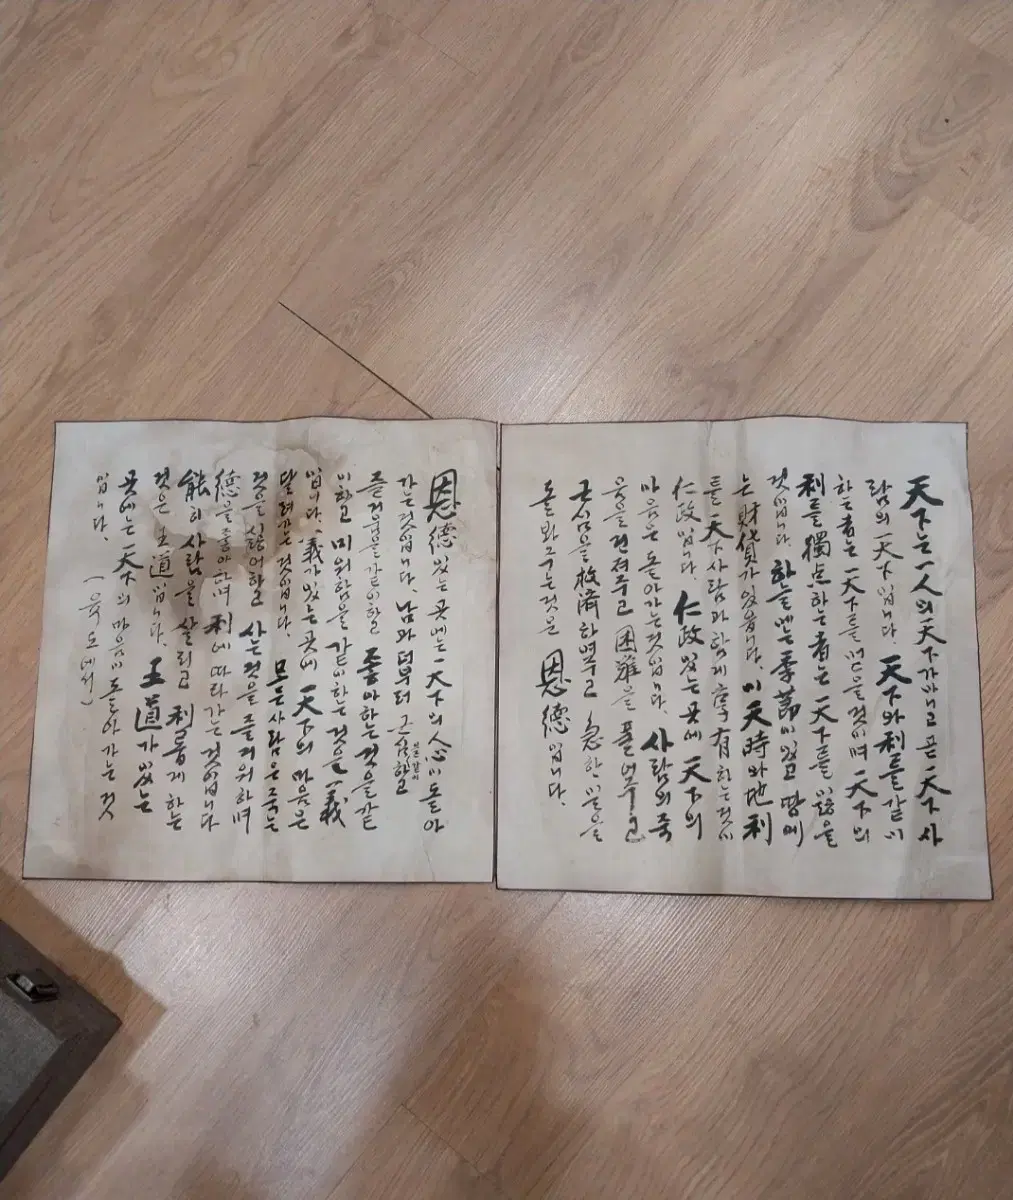 天下는 一人의 天下가 아니고 곧 天下 사
람의 天下입니다. 天下와 利를 같이
하는 者는 天下를 얻을 것이며 天下의
利를 獨点하는 者는 天下를 잃을
것입니다. 하늘에는 季節이 있고 땅에
는 財貨가 있읍니다. 이 天時와 地利
를 天下 사람과 함께 享有하는 것이
仁政입니다. 仁政 있는 곳에 天下의
마음은 돌아가는 것입니다. 사람의 죽
음을 건져주고 困難을 풀어주고
근심을 救済하여주고 急한 일을
돌봐 주는 것은 恩德입니다.
恩德 있는 곳에는 天下의 人心이 돌아
가는 것입니다. 남과 더부러 근심하고
즐거움을 같이하고 좋아하는 것을 같
이하고 미워함을 같이하는 것을 義
입니다. 義가 있는 곳에 天下의 마음은
달려가는 것입니다. 모든 사람은 죽는
것을 싫어하고 사는 것을 즐거워하며
德을 좋아하며 利에 따라가는 것입니다
能히 사람을 살리고 利롭게 하는
것은 王道입니다. 王道가 있는
곳에는 天下의 마음이 돌아가는 것
입니다. (육도에서)